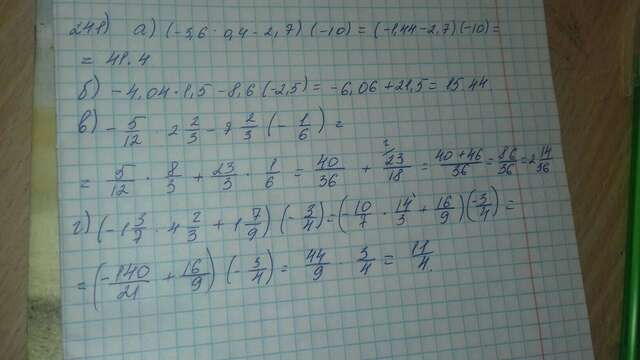 248) а) (-3,6 · 0,4 - 2,7) (-10) = (-1,44 - 2,7) (-10) =
= 41.4
б) -4,04 · 1,5 - 8,6 (-2,5) = -6,06 + 21,5 = 15,44.
в) -5/12 · 2 2/3 - 7 2/3 (-1/6) =
= 5/12 · 8/3 + 23/3 · 1/6 = 40/36 + 23/18 = 40+46/36 = 86/36 = 2 14/36
г) (-1 3/7 · 4 2/3 + 1 7/9) (-3/4) = (-10/7 · 14/3 + 16/9) (-3/4) =
= (-140/21 + 16/9) (-3/4) = 44/9 · 3/4 = 11/4.